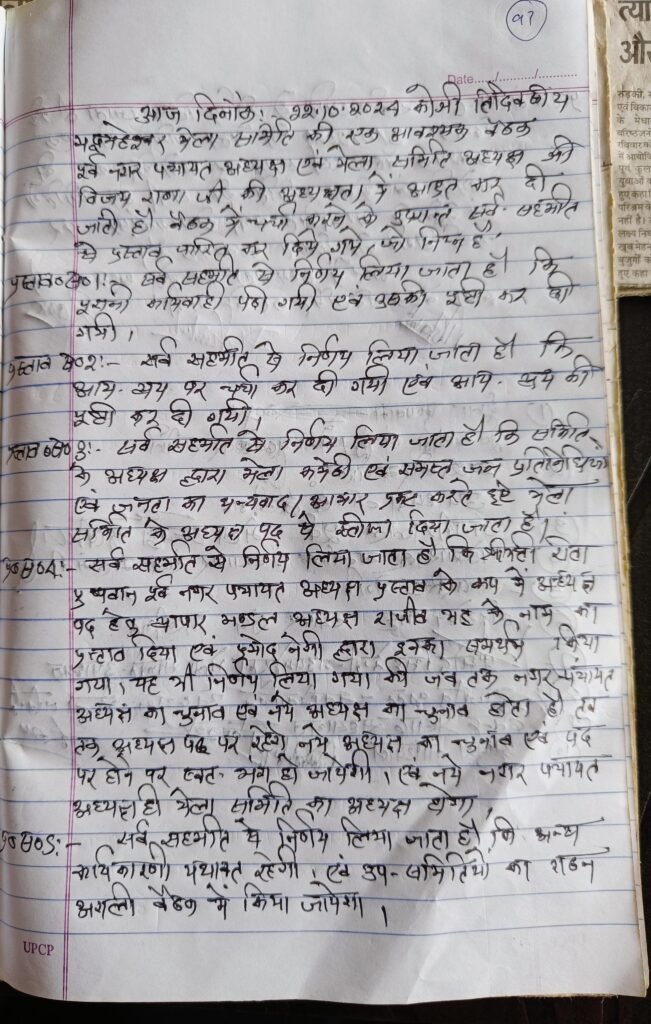 97
Date...../........../..........
आज दिनाँक: 22.10.2024 को श्री त्रिदिवसीय
मद्महेश्वर मेला समिति की एक आवश्यक बैठक
पूर्व नगर पंचायत अध्यक्ष एवं मेला समिति अध्यक्ष श्री
विजय राणा जी की अध्यक्षता में आहूत कर दी
जाती है। बैठक में चर्चा करने के उपरान्त सर्व-सहमति
से प्रस्ताव पारित कर किये गये, जो निम्न हैं
प्रस्ताव स० 01:- सर्व सहमति से निर्णय लिया जाता है कि
कार्यवाही पढी गयी एवं उसकी पुष्टी कर दी
गयी।
प्रस्ताव स० 2:- सर्व सहमति से निर्णय लिया जाता है। कि
आय-व्यय पर चर्चा कर दी गयी एवं आय-व्यय की
पुष्टी कर दी गयी।
प्रस्ताव स० 3:- सर्व सहमति से निर्णय लिया जाता है। कि समिति
के अध्यक्ष द्वारा मेला कमेटी एवं समस्त जन प्रतिनिधियों
एवं जनता का धन्यवाद/आभार प्रकट करते हुए मेला
समिति के अध्यक्ष पद से स्तीफा दिया जाता है।
प्र० स० 04:- सर्व सहमति से निर्णय लिया जाता है कि श्रीमती रीता
पुष्पवान पूर्व नगर पंचायत अध्यक्ष प्रस्ताव के रूप में अध्यक्ष
पद हेतु व्यापार मण्डल अध्यक्ष राजीव भट्ट के नाम का
प्रस्ताव दिया एवं प्रमोद नेगी द्वारा इनका समर्थन किया
गया, यह भी निर्णय लिया गया की जब तक नगर पंचायत
अध्यक्ष का चुनाव एवं नये अध्यक्ष का चुनाव होता है तब
तक अध्यक्ष पद पर रहेंगे नये अध्यक्ष का चुनाव एवं पद
पर होने पर स्वत: भंग हो जायेगी। एवं नये नगर पंचायत
अध्यक्ष ही मेला समिति का अध्यक्ष होगा।
प्र० स० 05:- सर्व सहमति से निर्णय लिया जाता है, कि अन्य
कार्यकारणी यथावत रहेगी। एवं उप-समितियों का गठन
अगली बैठक में किया जायेगा।
UPCP